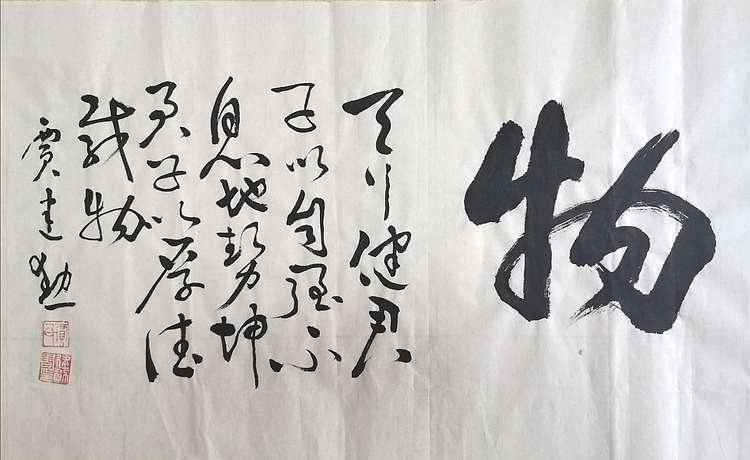 物
天行健君
子以自强不
息地势坤
君子以厚德
载物
贾建勋